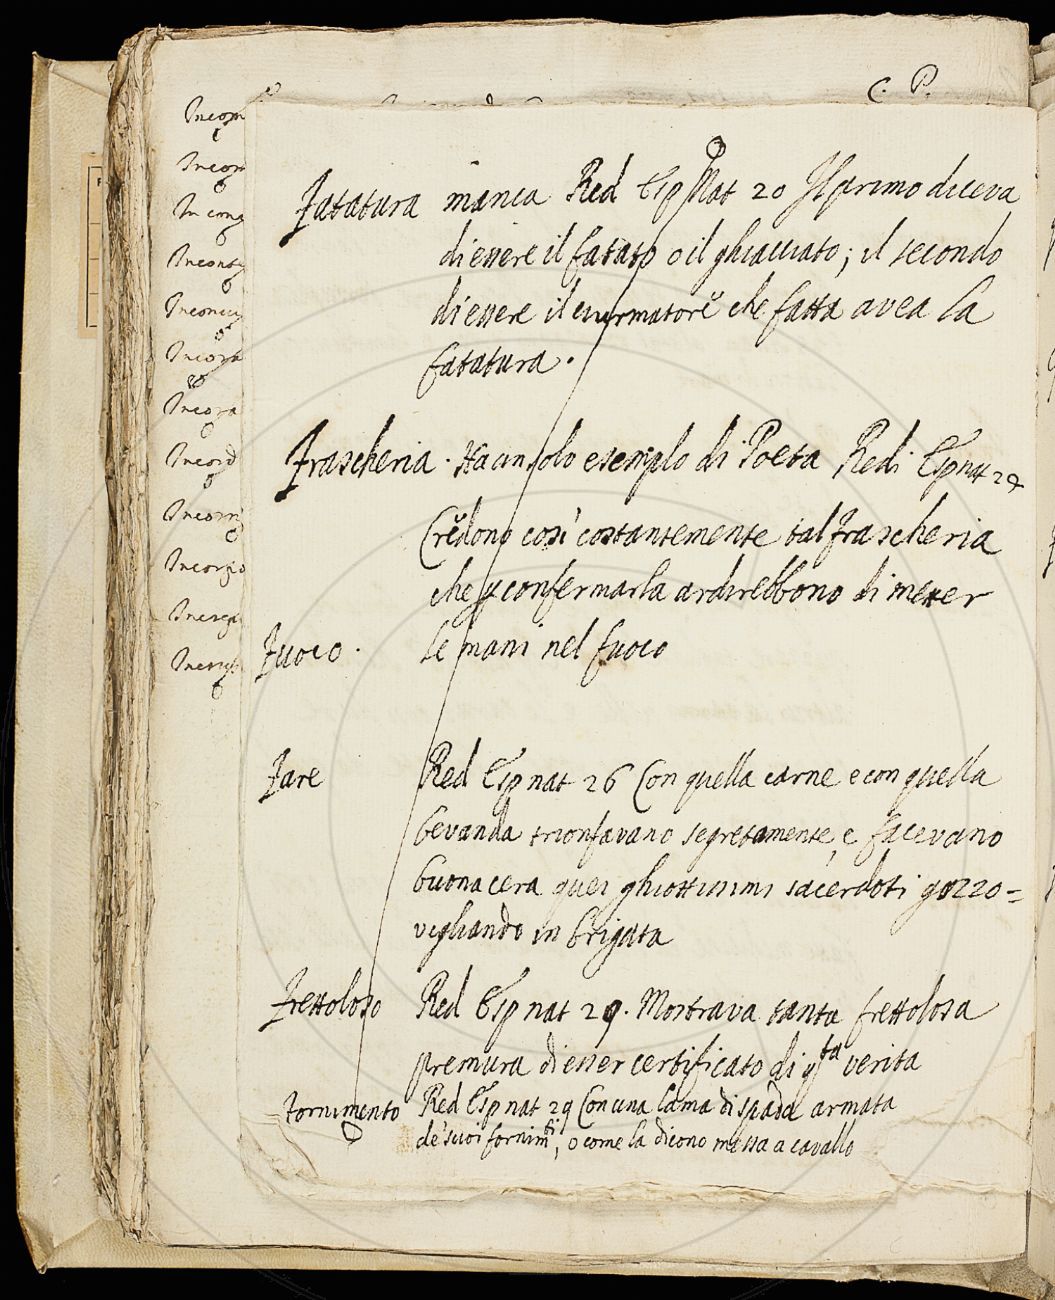 C. P.
Incom
Incon
In cong
Fatatura manca Red Esp Nat 20 Il primo diceva
di essere il fatato o il ghiacciato; il secondo
di essere il ciurmatore che fatta avea la
fatatura.
Frascheria. Ha un solo esemplo di Poeta Redi Esp nat 24
Credono così costantemente tal frascheria
che p confermarla ardirebbono di metter
Fuoco. le mani nel fuoco
Fare Red Esp nat 26 Con quella carne e con quella
bevanda trionfavano segretamente, e facevano
buona cera quei ghiottissimi sacerdoti gozzo=
vigliando in brigata
Frettoloso Red Esp nat 29. Mostrava tanta frettolosa
premura di esser certificato di qta verita
Fornimento Red Esp nat 29 Con una lama di spada armata
de' suoi fornimti, o come la dicono messa a cavallo